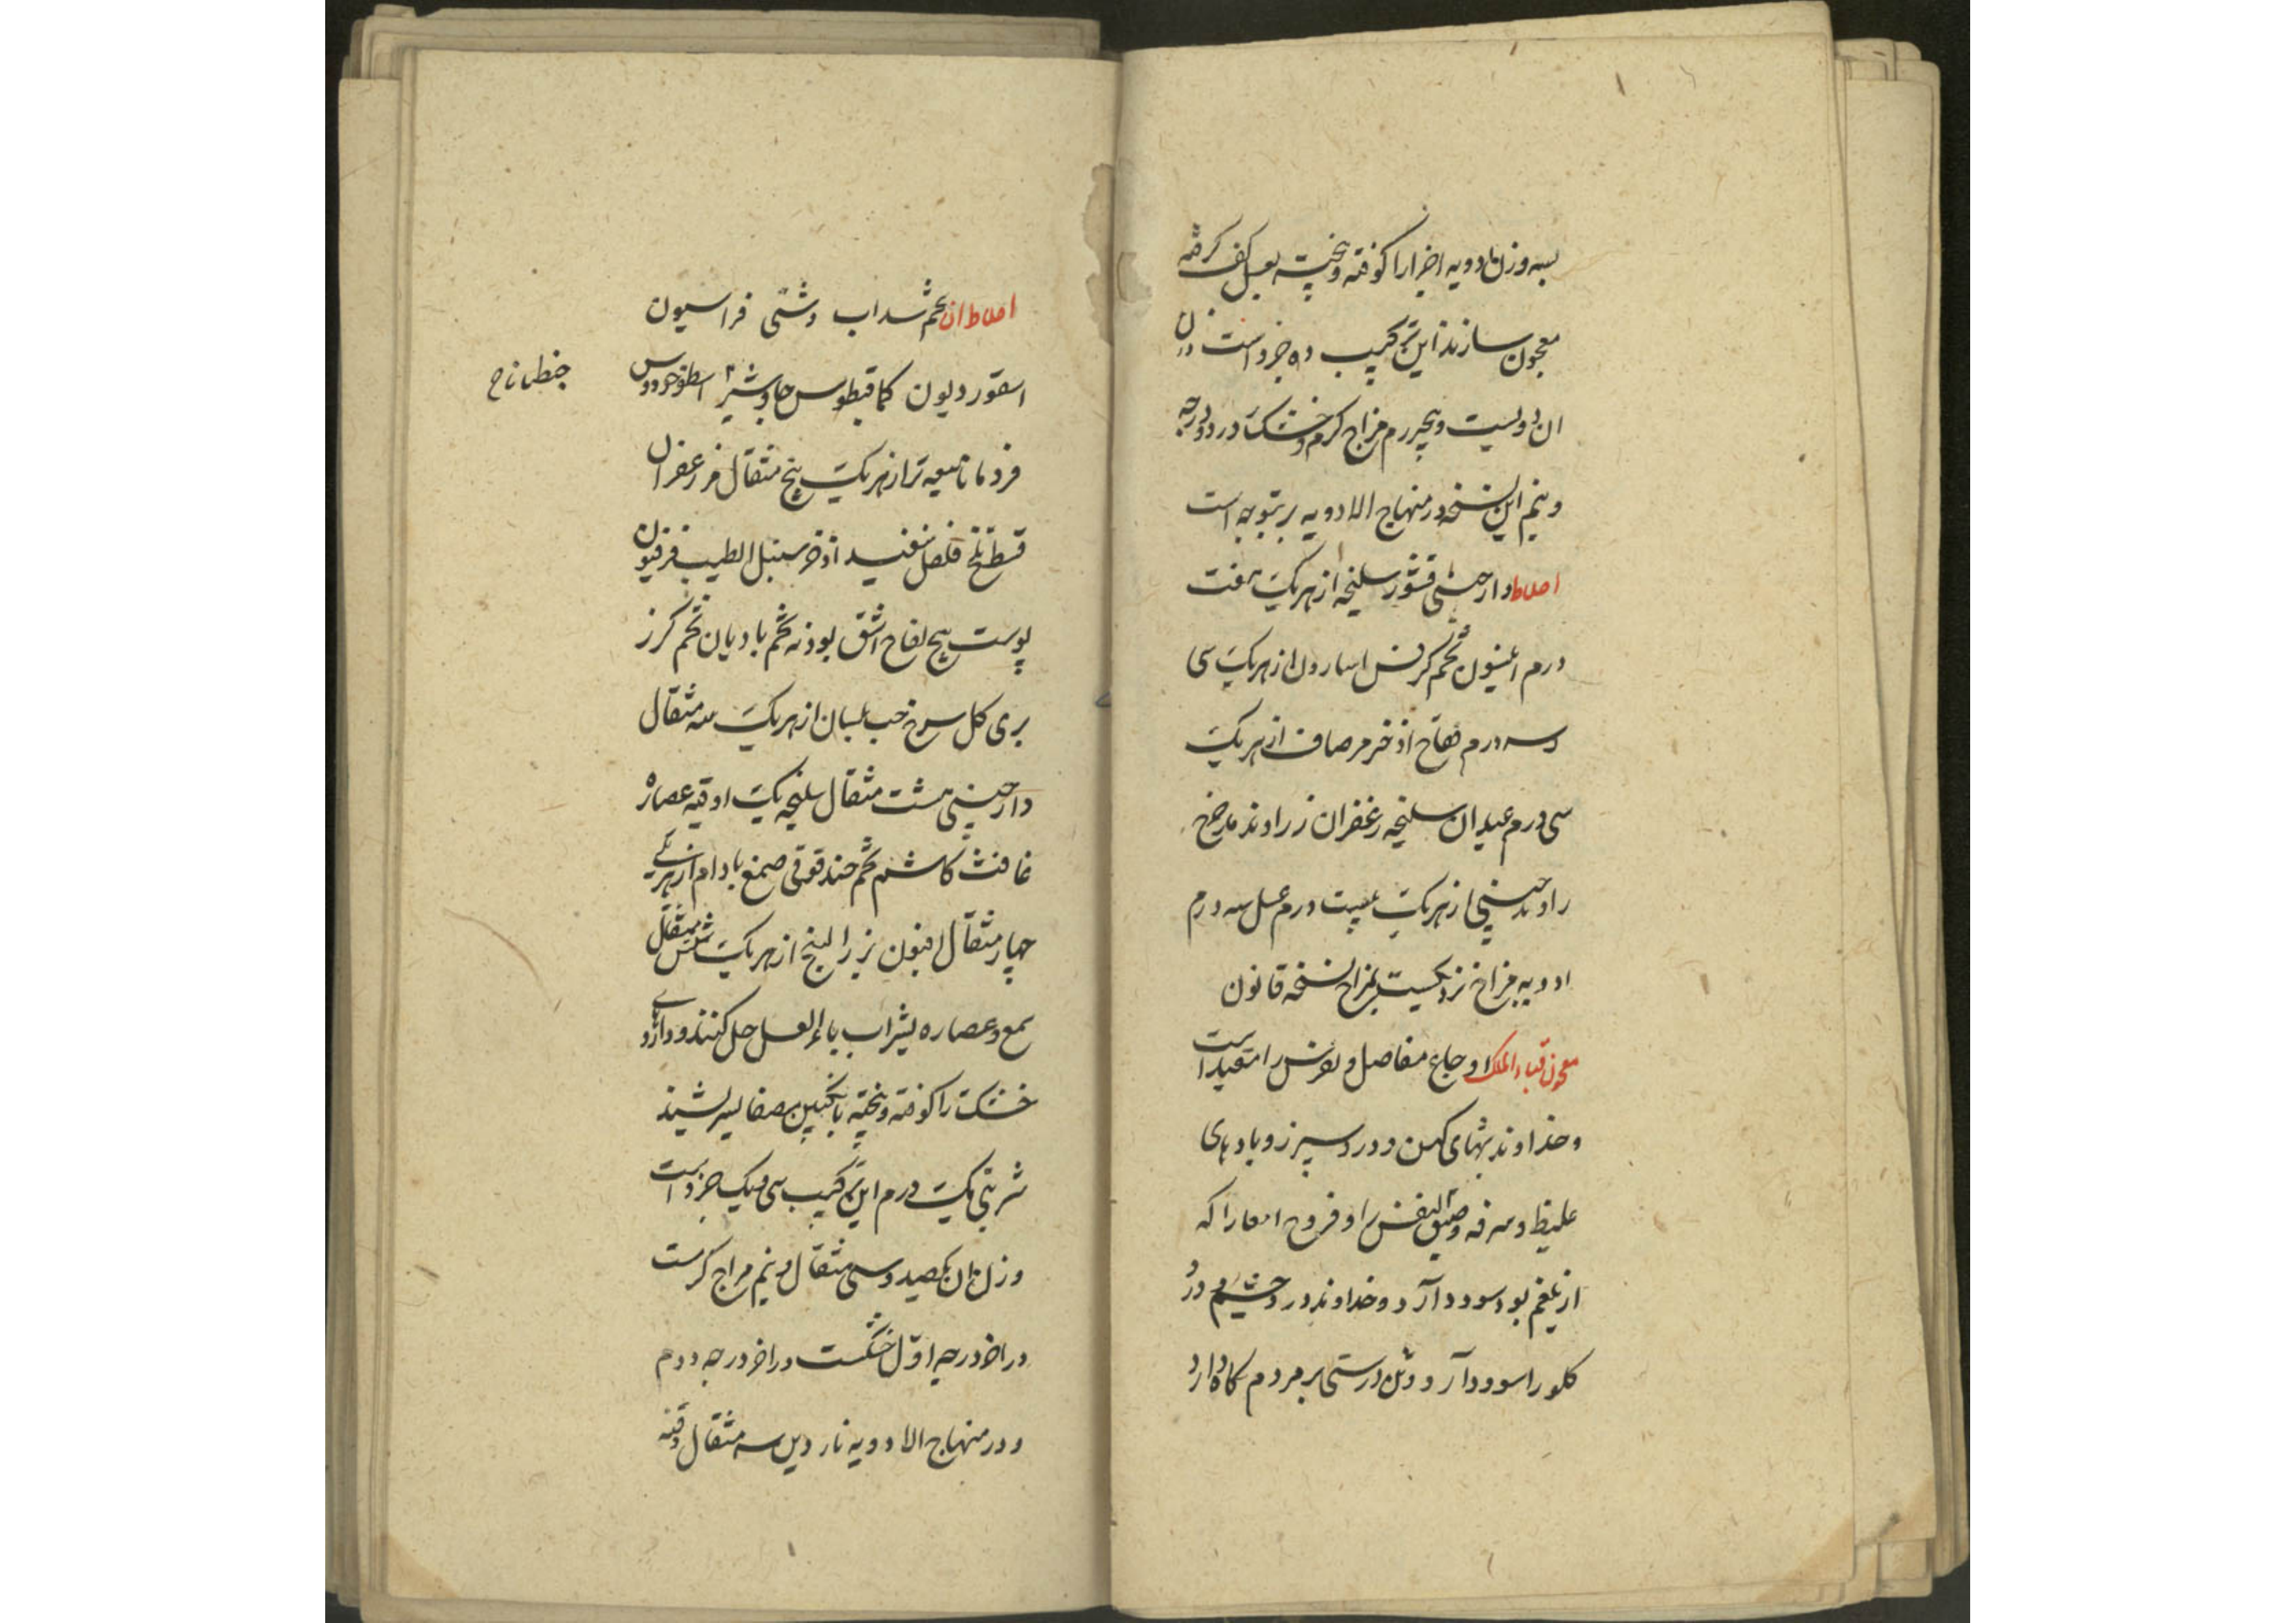 بسه وزن ادویه اجزا را کوفته و پخته بعسل کف گرفته
معجون سازند این ترکیب ده جزو است وزن
ان دویست و پنج درم مزاج گرم و خشک در دو درجه
و نیم این نسخه در منهاج الادویه است
اخلاط دارچینی قشور سلیخه از هر یک هفت
درم انیسون تخم کرفس اسارون از هر یک سی
و سه درم فقاح اذخر مر صاف از هر یک
سی درم عیدان سلیخه زعفران زراوند مدحرج
راوند چینی از هر یک بیست درم عسل سه درم
ادویه مزاج نزدیکست بمزاج نسخه قانون
معجون قباد الملک اوجاع مفاصل و نقرس را مفید است
و خداوند تبهای کهن و درد سپرز و بادهای
غلیظ و سرفه و ضیق النفس را و قروح امعا را که
از بلغم بود سود دارد و خداوند درد چشم و درد
کلو را سود دارد و تن درستی بر مردم نکاه دارد
اخلاط ان تخم سداب دشتی فراسیون
اسقوردیون کمافیطوس جاوشیر اسطوخودوس
جنطیانا ح
فردمانا میعه تر از هر یک پنج مثقال مر زعفران
قسط تلخ فلفل سفید اذخر سنبل الطیب فرفیون
پوست بیخ لفاح اشق بودنه تخم بادیان تخم کزر
بری کل سرخ حب بلسان از هر یک سه مثقال
دارچینی هشت مثقال سلیخه یک اوقیه عصاره
غافث کاشم تخم حندقوقی صمغ بادام از هر یکی
چهار مثقال افیون بزر البنج از هر یک شش مثقال
صمغ و عصاره بشراب یا ماء العسل حل کنند و داروهای
خشک را کوفته و پخته بانکبین مصفا بسرشند
شربتی یک درم این ترکیب سی و یک جزو است
وزن ان یکصد و سی مثقال و نیم مزاج کرمست
در اخر درجه اول خشکست در اخر درجه دوم
و در منهاج الادویه ناردین سه مثقال وقنه